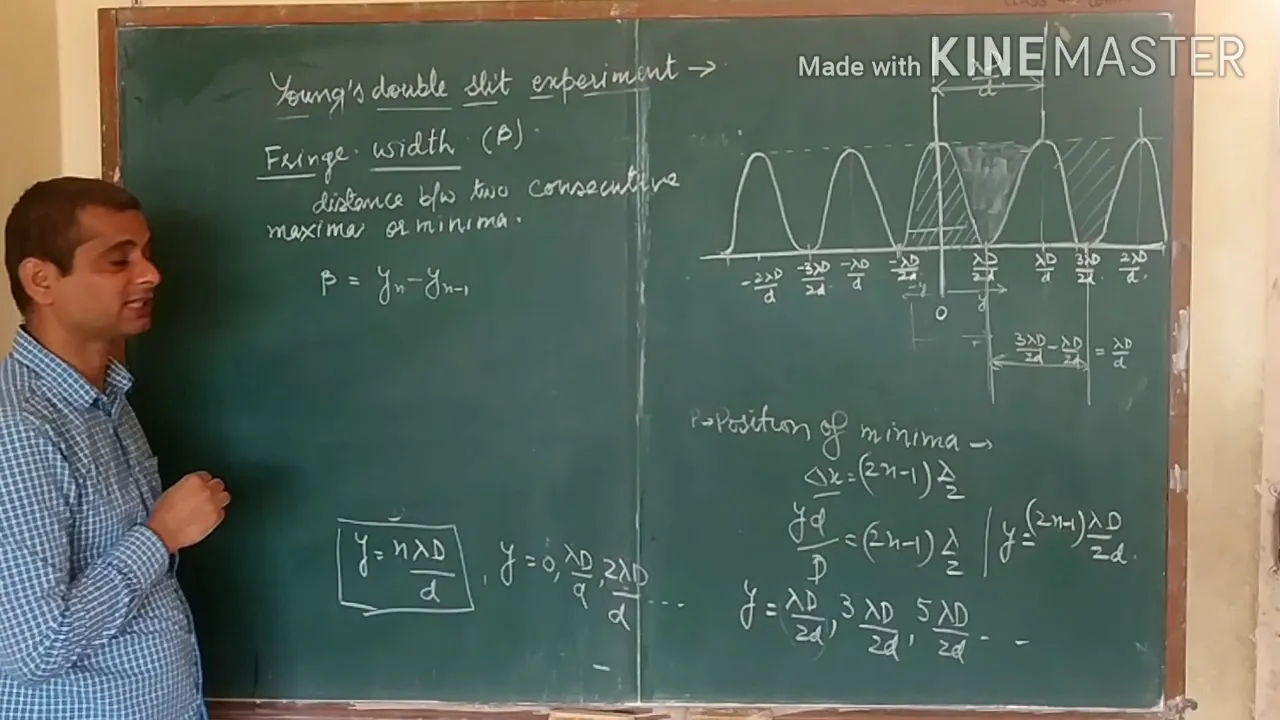 Made with KINEMASTER
Young's double slit experiment →
Fringe width (β).
distance b/w two consecutive
maxima or minima.
β = yₙ - yₙ₋₁
y = nλD/d , y = 0, λD/d, 2λD/d ...
λD/d
-2λD/d -3λD/2d -λD/d -λD/2d λD/2d λD/d 3λD/2d 2λD/d
-y 0 y
3λD/2d - λD/2d = λD/d
Position of minima →
Δx = (2n-1) λ/2
yd/D = (2n-1) λ/2 | y = (2n-1) λD/2d.
y = λD/2d, 3λD/2d, 5λD/2d - -